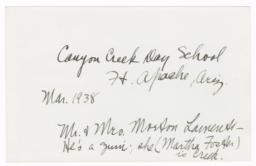 Canyon Creek Day School
Ft. Apache, Ariz.
Mar. 1938
Mr. & Mrs. Morton
He's a Zuni; she (Martha Foster)
is Creek.